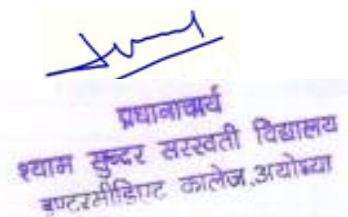 प्रधानाचार्य
श्याम सुन्दर सरस्वती विद्यालय
इण्टरमीडिएट कालेज,अयोध्या